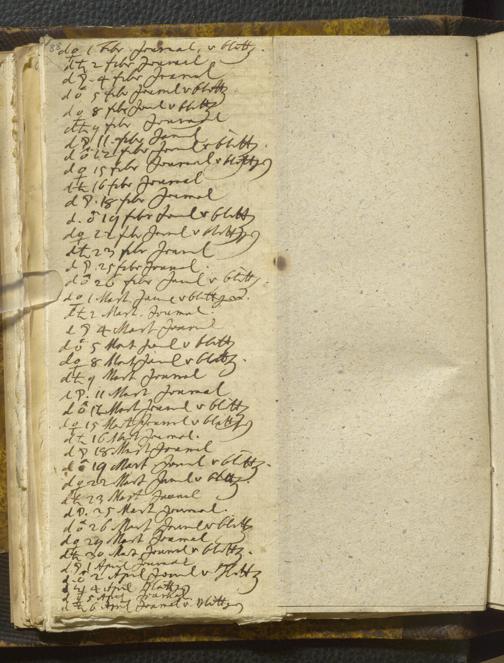 88 d ♀ 1 febr Journal, v blätt.
d ♄ 2 febr Journal
d ☿ 4 febr Journal
d ♂ 5 febr Journl v blätt
d ♀ 8 febr Journl v blätt
d ♄ 9 febr Journal
d ☿ 11 febr Journl
d ♂ 12 febr Journl v blätt.
d ♀ 15 febr Journal v blätt
d ♄ 16 febr Journal
d ☿ 18 febr Journal
d. ♂ 19 febr Journl v blätt
d ♀ 22 febr Journl v blätt
d ♄ 23 febr Journl
d ☿ 25 febr Journal.
d ♂ 26 febr Journl v blätt.
d ♀ 1 Mart Journl v blätt
d ♄ 2 Mart. Journal.
d ☿ 4 Mart Journl
d ♂ 5 Mart Journl v blätt
d ♀ 8 Mart Journl v blätt.
d ♄ 9 Mart Journal
d ☿. 11 Mart Journal
d ♂ 12 Mart Journl v blätt
d ♀ 15 Mart Journl v blätt
d ♄ 16 Mart Journal.
d ☿ 18 Mart Journal
d ♂ 19 Mart Journl v blätt.
d ♀ 22 Mart Journl v blätt.
d ♄ 23 Mart Journal
d ☿. 25 Mart Journal.
d ♂ 26 Mart Journl v blätt
d ♀ 29 Mart Journal
d ♄ 30 Mart Journl v blätt.
d ☿ 1 April Journal
d ♂ 2 April Journl v Blätt
4 April Blätt
d ♀ 5 April Journal
d ♄ 6 April Journal v. Blätt